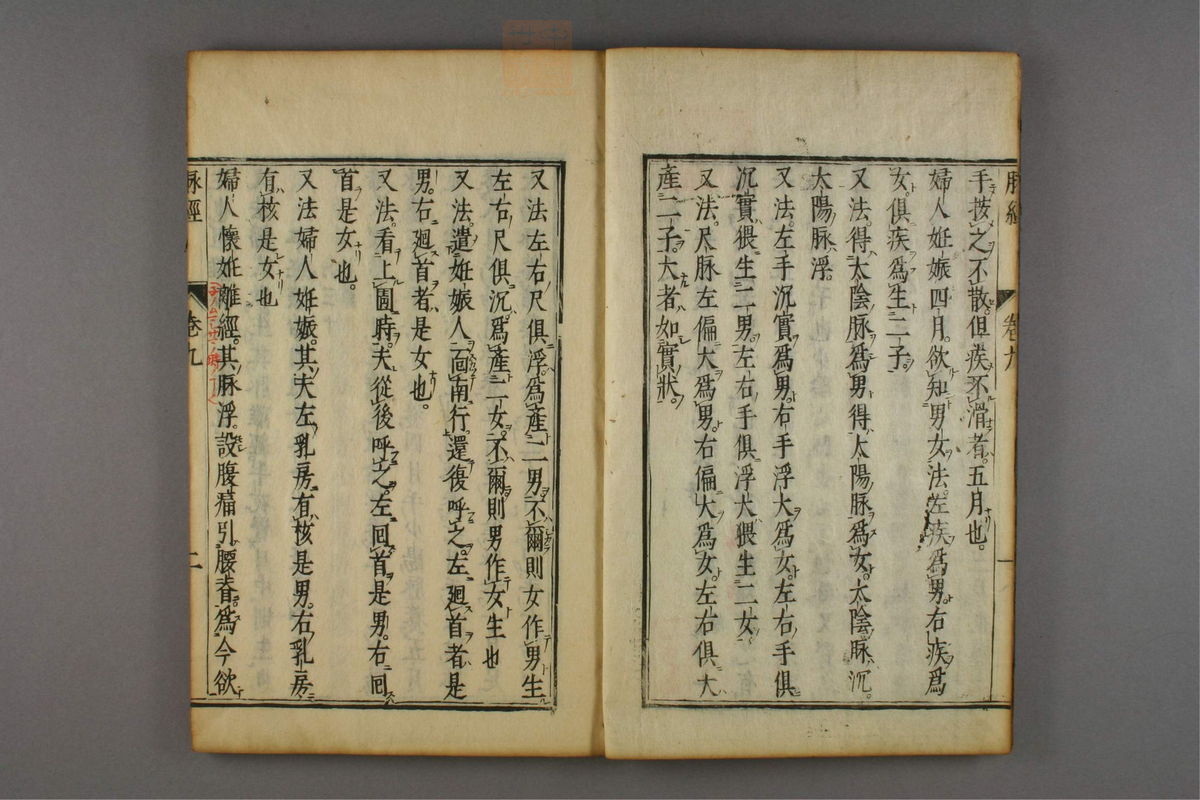 脉經
卷九
一
手按之不散但疾不滑者五月也。
婦人妊娠四月欲知男女法左疾爲男右疾爲
女俱疾爲生二子
又法得太陰脉爲男得太陽脉爲女太陰脉沉
太陽脉浮
又法左手沉實爲男右手浮大爲女左右手俱
沉實猥生二男左右手俱浮大猥生二女
又法尺脉左偏大爲男右偏大爲女左右俱大
產二子大者如實狀
又法左右尺俱浮爲產二男不爾則女作男生
左右尺俱沉爲產二女不爾則男作女生也
又法遣妊娠人面南行還復呼之左廻首者是
男右廻首者是女也。
又法看上圊時夫從後呼之左回首是男右回
首是女也。
又法婦人妊娠其夫左乳房有核是男右乳房
有核是女也
婦人懷妊離經其脉浮設腹痛引腰脊爲今欲
脉經
卷九
二